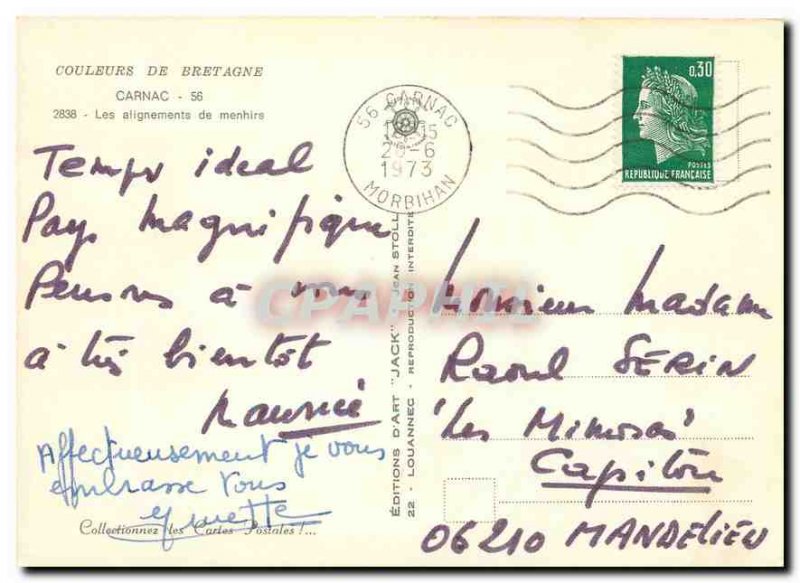 COULEURS DE BRETAGNE
CARNAC - 56
2838 - Les alignements de menhirs
Temps idéal
Pays magnifique
Pensons à vous
à très bientôt
Maurice
Affectueusement je vous
embrasse tous
Ginette
Collectionnez les Cartes Postales !...
56 CARNAC
28-6
1973
MORBIHAN
0,30
POSTES
REPUBLIQUE FRANÇAISE
EDITIONS D'ART "JACK" - JEAN STOLL
22 - LOUANNEC - REPRODUCTION INTERDITE
CPAPHIL
Monsieur Madame
Raoul SERIN
"Les Mimosas"
Capitou
06210 MANDELIEU